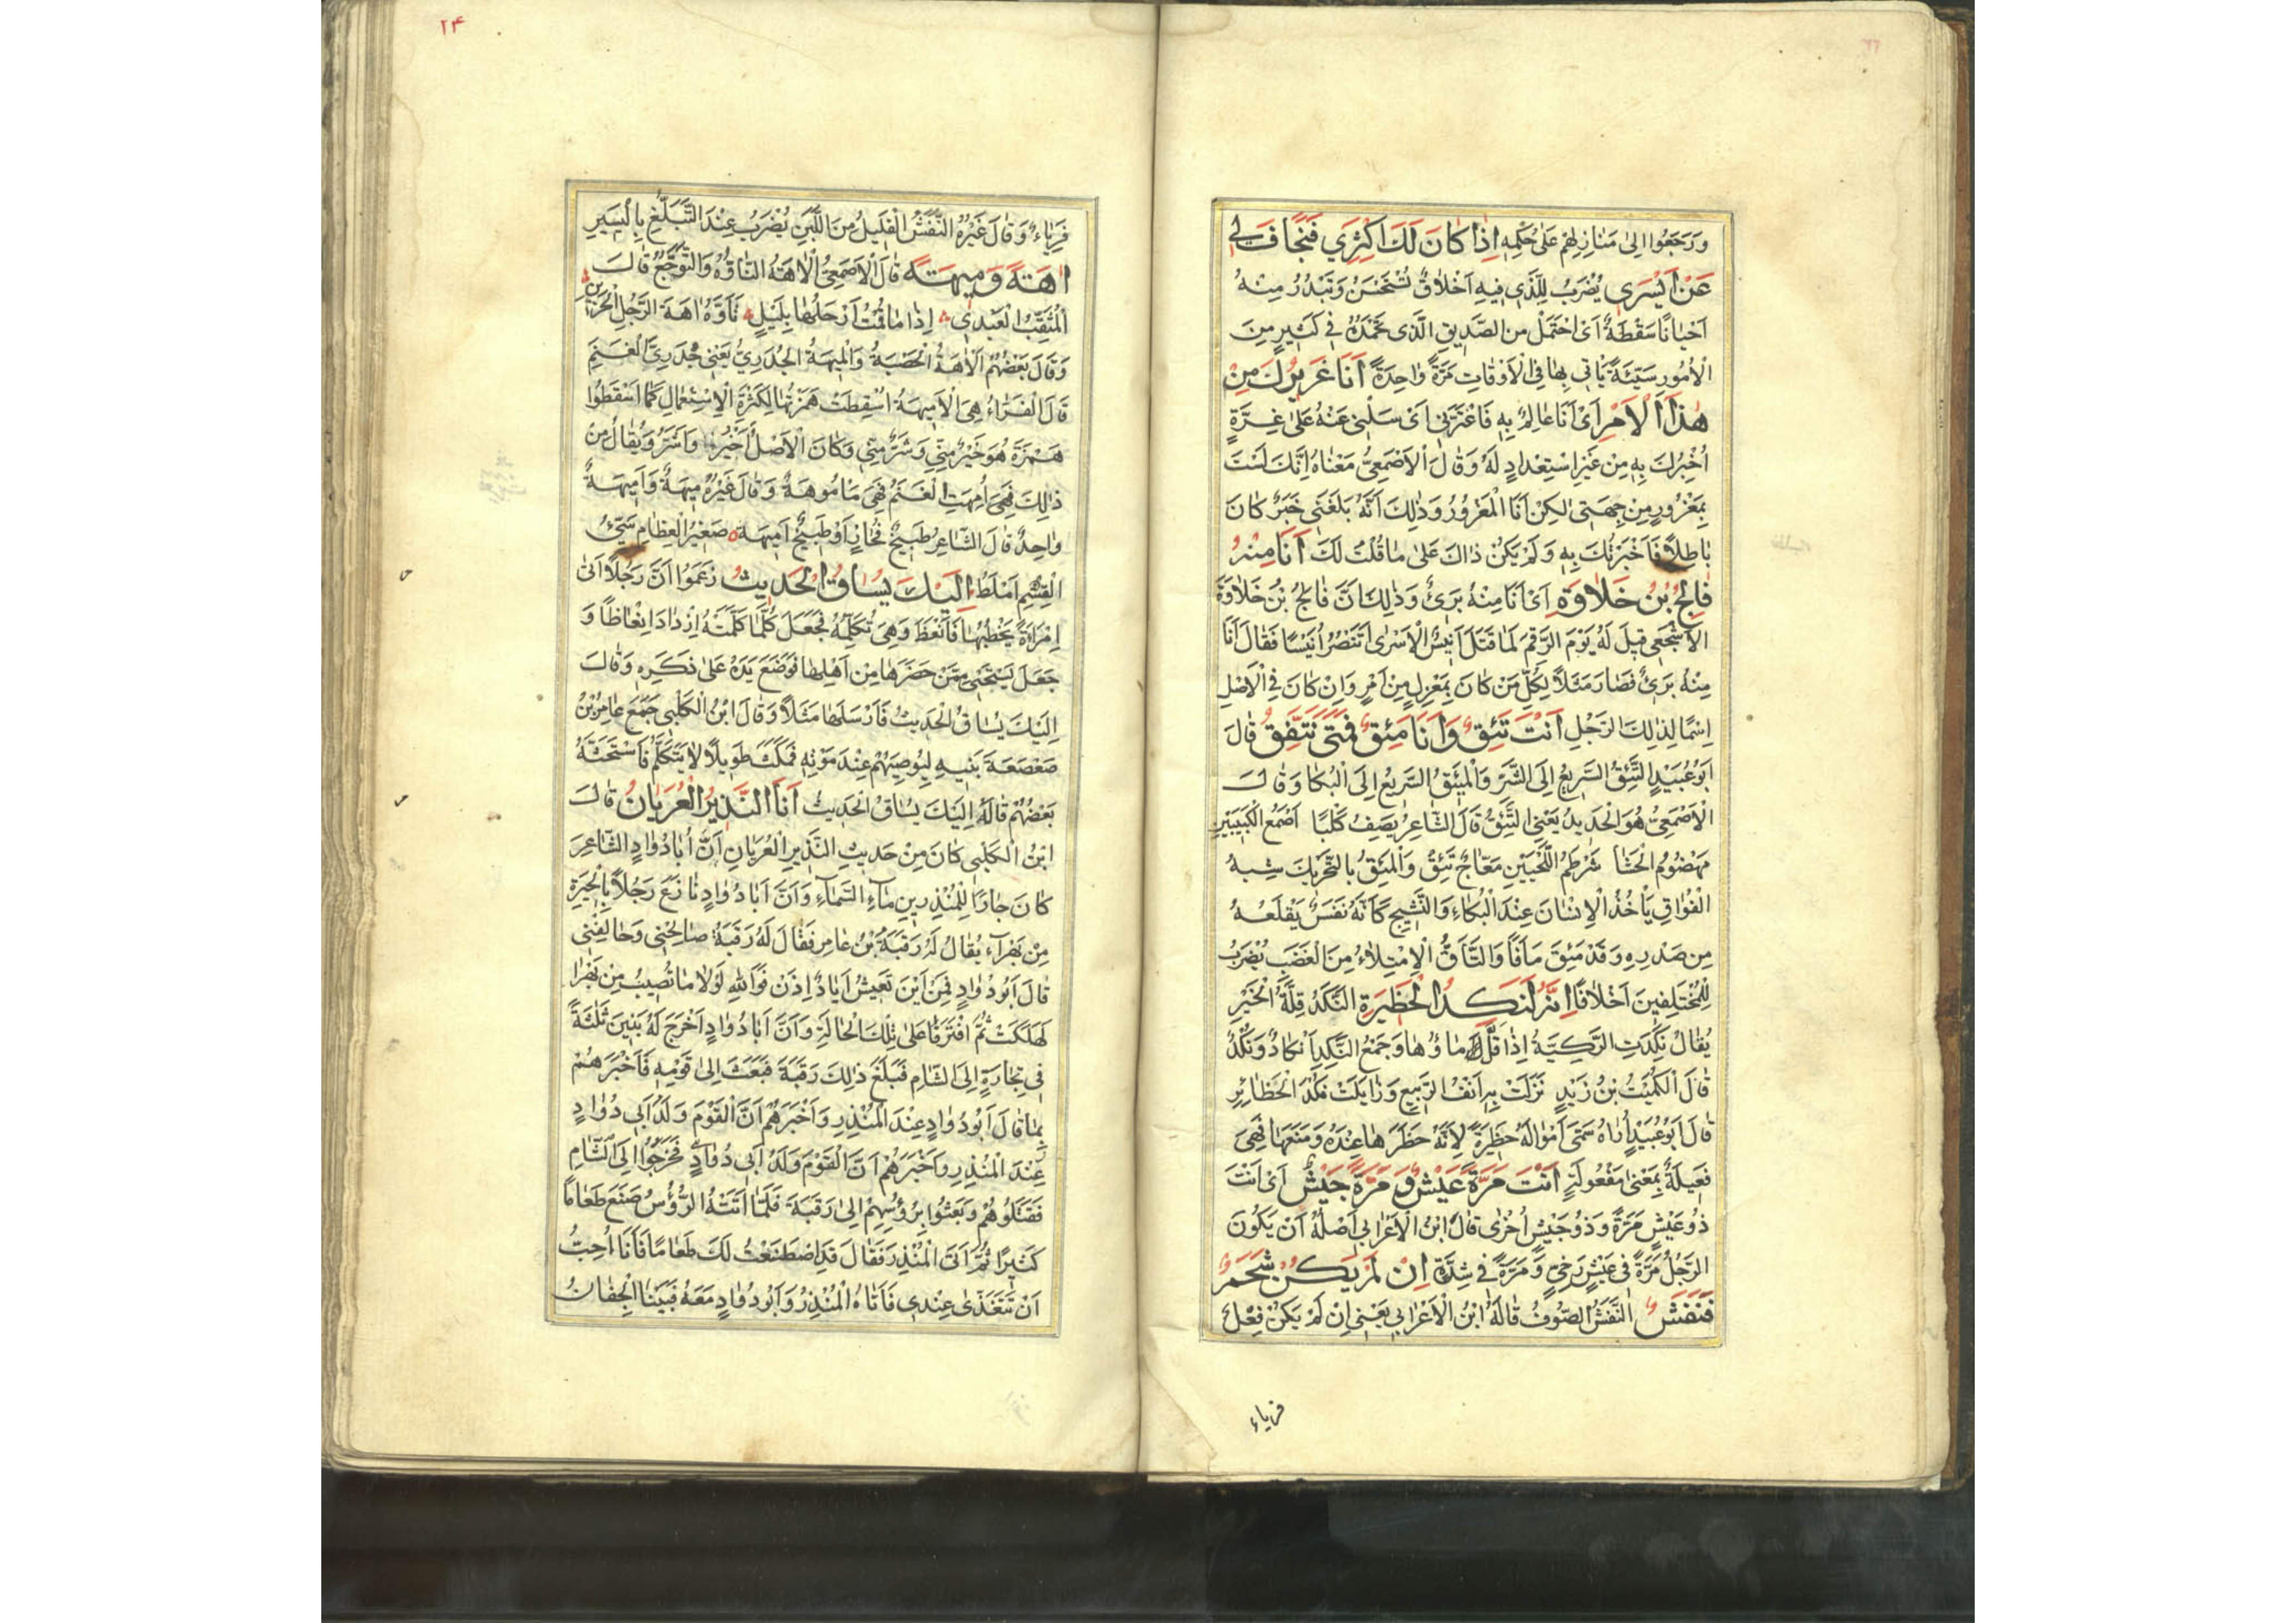 ورجعوا الى منازلهم على حكمه اذا كان لك اكثري فتجاف لي
عن ايسري يضرب للذي فيه اخلاق تستحسن وتبدر منه
احيانا سقطة اى احتمل من الصديق الذى تحمده في كثير من
الأمور سيئة يأتي بها في الاوقات مرة واحدة انا غريرك من
هذا الامر اى انا عالم به فاغترني اى سلني عنه على غرة
اخبرك به من غير استعداد له وقال الاصمعي معناه انك لست
بمغرور من جهتي لكن انا المغرور وذلك انه بلغني خبر كان
باطلا فاخبرتك به ولم يكن ذاك على ما قلت لك انا منه
فالج بن خلاوة اى انا منه برئ وذلك ان فالج بن خلاوة
الاشجعي قيل له يوم الرقم لما قتل انيس الاسرى اتنصر انيسا فقال انا
منه برئ فصار مثلا لكل من كان بمعزل من امر وان كان في الاصل
اسما لذلك الرجل انت تئق وانا مئق فمتى نتفق قال
ابو عبيد التئق السريع الى الشر والمئق السريع الى البكا وقال
الاصمعي هو الحديد يعني التئق قال الشاعر يصف كلبا اصمع الكعبين
مهضوم الحشا شرطم اللحيين معاج تئق والمئق بالتحريك شبه
الفواق يأخذ الانسان عند البكاء والنشيج كأنه نفس يقلعه
من صدره وقد مئق مأقا والتأق الامتلاء من الغضب يضرب
للمختلفين اخلاقا انه لنكد الحظيرة النكد قلة الخير
يقال نكدت الركية اذا قل ماؤها وجمع النكد انكاد ونكد
قال الكميت بن زيد نزلت به انف الربيع وزايلت نكد الحظائر
قال ابو عبيد اراه سمى امواله حظيرة لانه حظرها عنده ومنعها فهى
فعيلة بمعنى مفعولة انت مرة عيش ومرة جيش اى انت
ذو عيش مرة وذو جيش اخرى قال ابن الاعرابي اصله ان يكون
الرجل مرة في عيش رخي ومرة في شدة ان لم يكن شحم
فنفش النفش الصوف قاله ابن الاعرابي يعني ان لم يكن فعل
فرياء
٢٤
فرياء وقال غيره النفش القليل من اللبن يضرب عند التبلغ باليسير
اهة وميهة قال الاصمعي الاهة التأوه والتوجع قال
المثقب العبدي اذا ما قمت ارحلها بليل تأوه اهة الرجل الحزين
وقال بعضهم الاهة الحصبة والميهة الجدري يعني جدري الغنم
قال الفراء هي الاميهة اسقطت همزتها لكثرة الاستعمال كما اسقطوا
همزة هو خير مني وشر مني وكان الاصل اخير واشر ويقال من
ذلك فهي امهت الغنم فهي مأموهة وقال غيره ميهة واميهة
واحد قال الشاعر طبيخ نحاز او طبيخ اميهة صغير العظام سيئ
القشم املط اليك يساق الحديث زعموا ان رجلا اتى
امراءة يخطبها فانعظ وهي تكلمه فجعل كلما كلمته ازداد انعاظا و
جعل يستحيي ممن حضرها من اهلها فوضع يده على ذكره وقال
اليك يساق الحديث فارسلها مثلا وقال ابن الكلبي جمع عامر بن
صعصعة بنيه ليوصيهم عند موته فمكث طويلا لا يتكلم فاستحثه
بعضهم قاله اليك يساق الحديث انا النذير العريان قال
ابن الكلبي كان من حديث النذير العريان ان ابا دواد الشاعر
كان جارا للمنذر بن ماء السماء وان ابا دواد نازع رجلا بالحيرة
من بهراء يقال له رقبة بن عامر فقال له رقبة صالحني وحالفني
قال ابو دواد فمن اين تعيش اياد اذن فوالله لولا ما تصيب من بهرا
لهلكت ثم افترقا على تلك الحالة وان ابا دواد اخرج له بنين ثلثة
في تجارة الى الشام فبلغ ذلك رقبة فبعث الى قومه فاخبرهم
بما قال ابو دواد عند المنذر واخبرهم ان القوم ولد ابي دواد
عند المنذر واخبرهم ان القوم ولد ابي دواد فخرجوا الى الشام
فقتلوهم وبعثوا برؤسهم الى رقبة فلما اتته الرؤس صنع طعاما
كثيرا ثم اتى المنذر فقال قد اصطنعت لك طعاما فانا احب
ان تتغذى عندي فاتاه المنذر وابو دواد معه فبينا الجفان